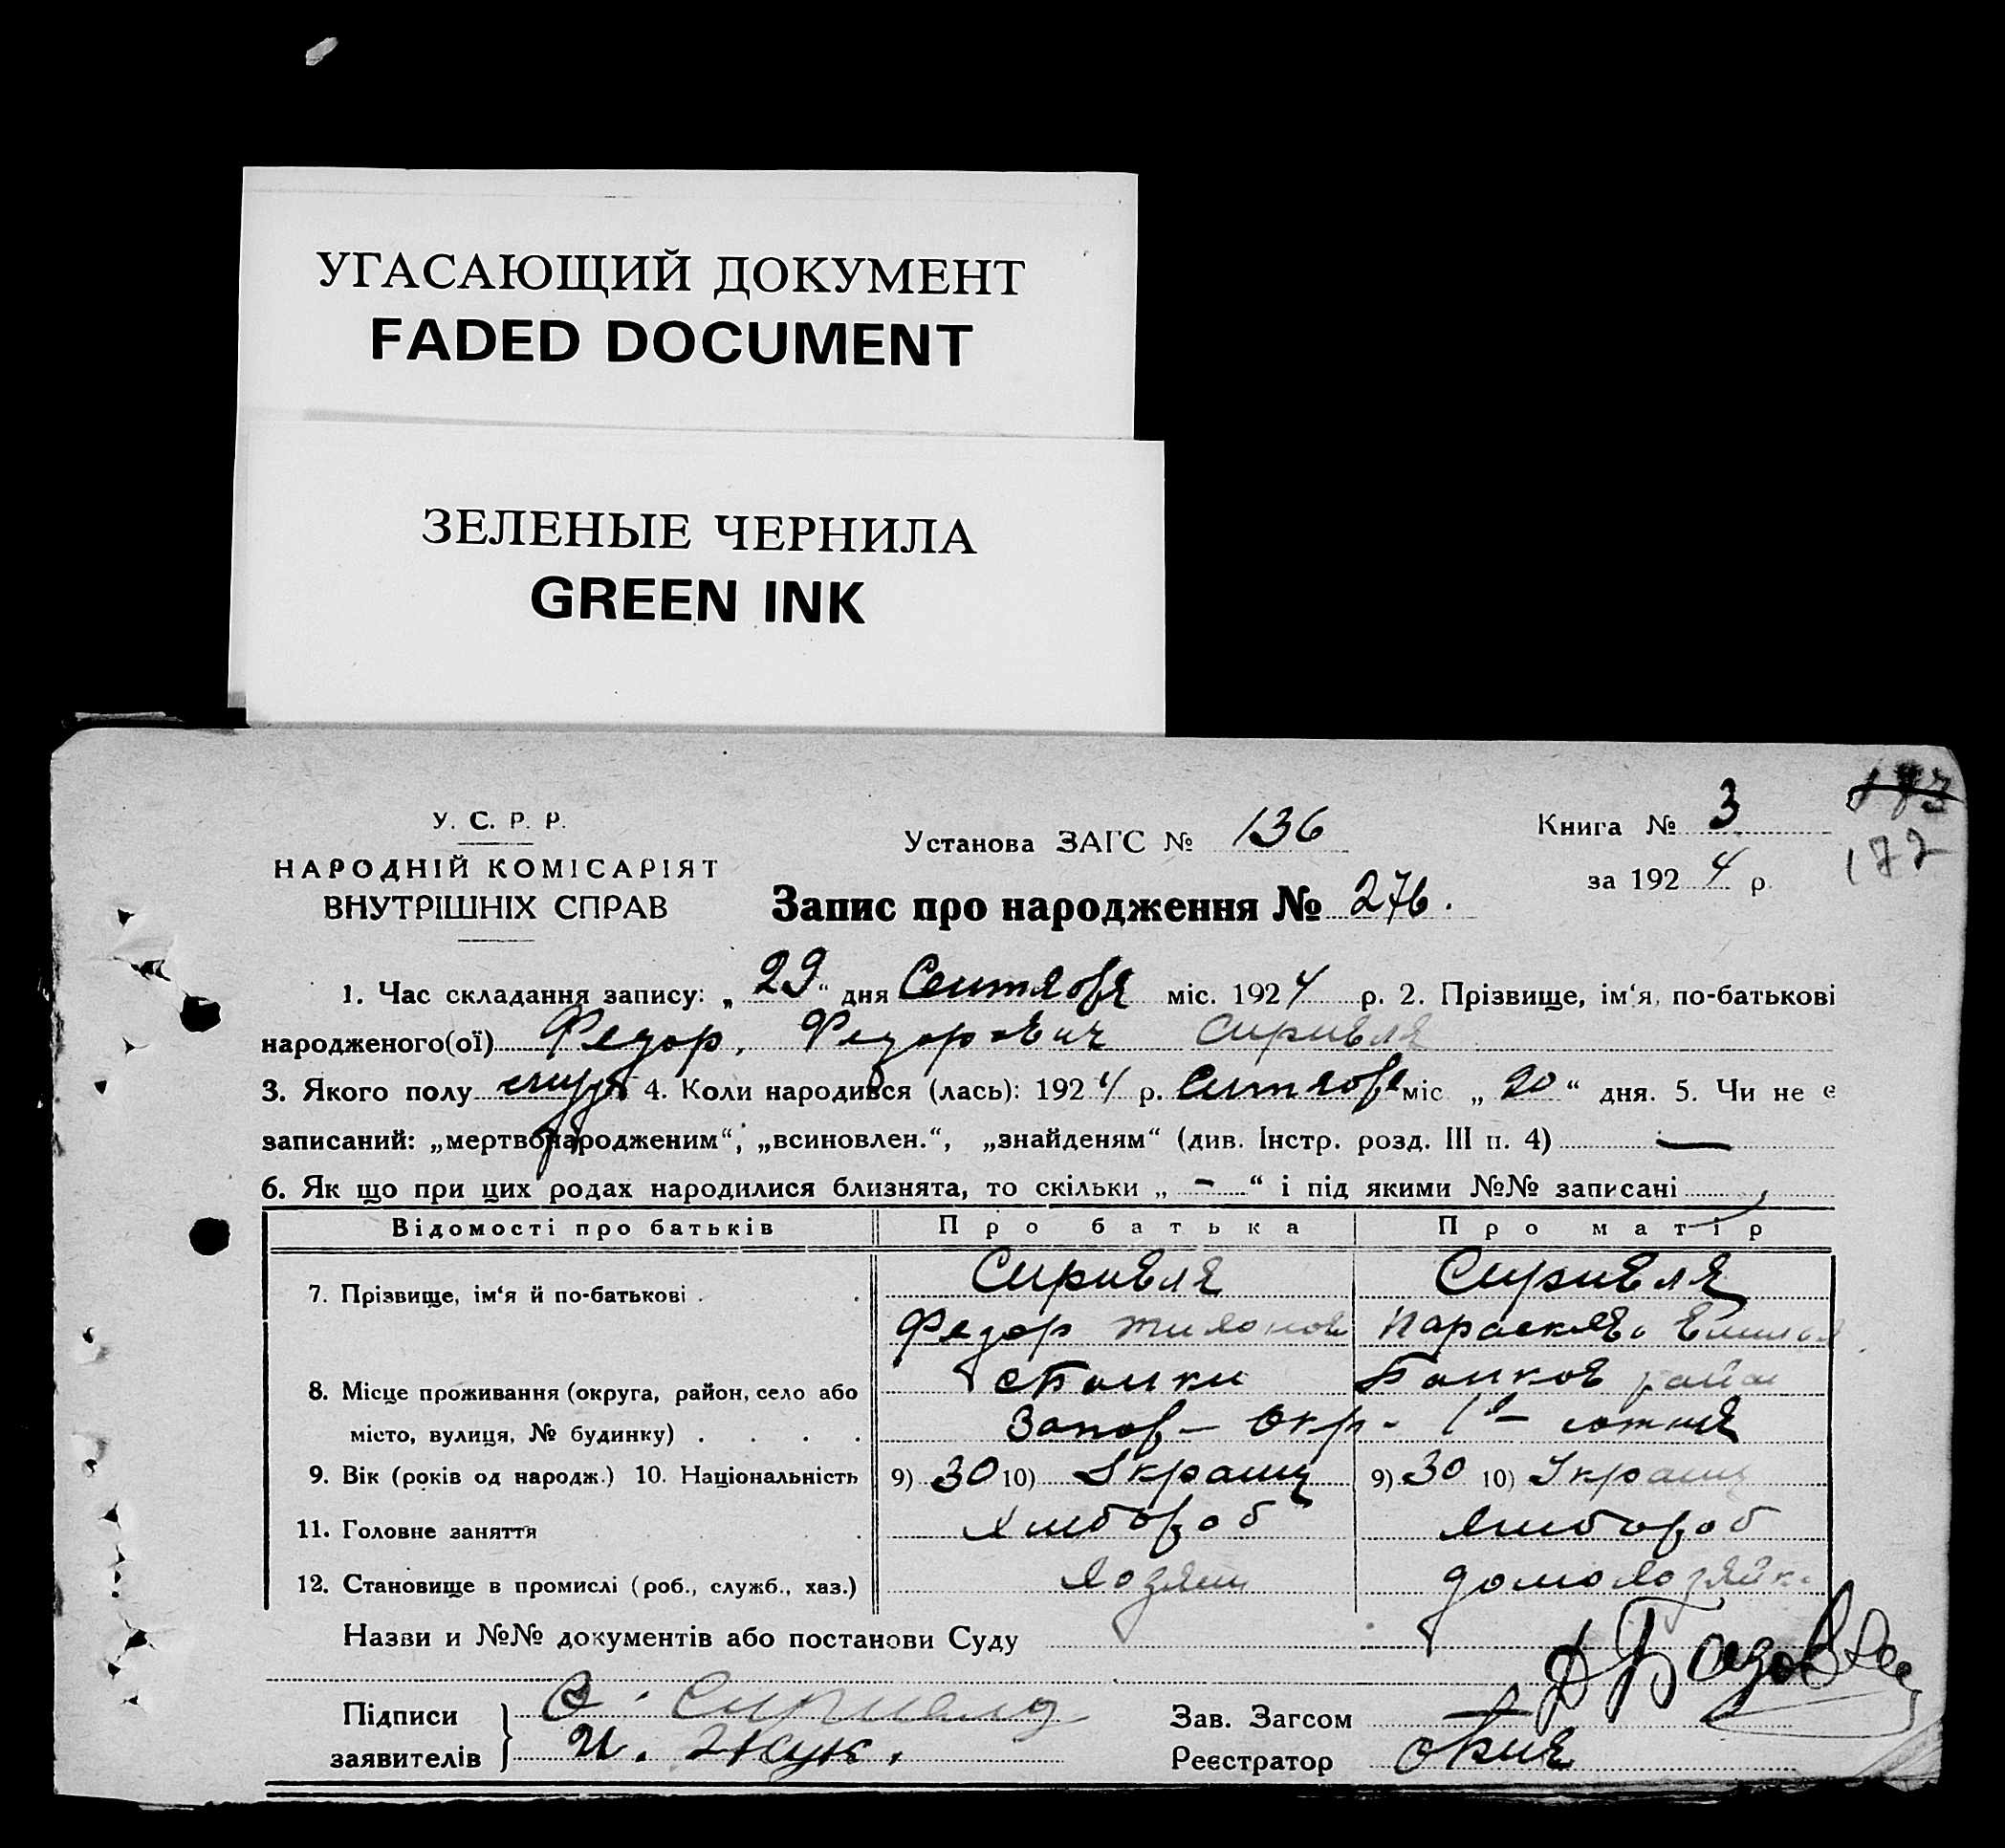 УГАСАЮЩИЙ ДОКУМЕНТ
FADED DOCUMENT
ЗЕЛЕНЫЕ ЧЕРНИЛА
GREEN INK
173
172
У. С. Р. Р.
НАРОДНІЙ КОМІСАРІЯТ
ВНУТРІШНІХ СПРАВ
Установа ЗАГС № 136
Книга № 3
за 1924 р.
Запис про народження № 276.
1. Час складання запису: „29“ дня Сентября міс. 1924 р. 2. Прізвище, ім‘я, по-батькові
народженого(ої) Федор, Федорович
3. Якого полу 4. Коли народився (лась): 1924 р. Сентября міс „20“ дня. 5. Чи не є
записаний: „мертвонародженим“, „всиновлен.“, „знайденям“ (див. Інстр. розд. III п. 4) —
6. Як що при цих родах народилися близнята, то скільки „ - “ і під якими №№ записані
Відомості про батьків Про батька Про матір
7. Прізвище, ім‘я й по-батькові .
Федор
8. Місце проживання (округа, район, село або Балки район
місто, вулиця, № будинку) . . . . Запор- Окр- 1а- сотня
9. Вік (років од народж.) 10. Національність 9) 30 10) Украинц 9) 30 10) Украинц
11. Головне заняття Хлибороб Хлибороб
12. Становище в промислі (роб., служб., хаз.) Хозяин домохозяйка
Назви и №№ документів або постанови Суду
Підписи
заявителів И. Жук.
Зав. Загсом
Реєстратор